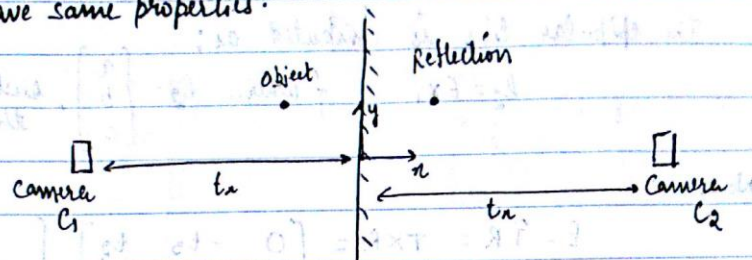 we same properties.
object
Reflection
y
x
Camera
C1
tx
tx
Camera
C2